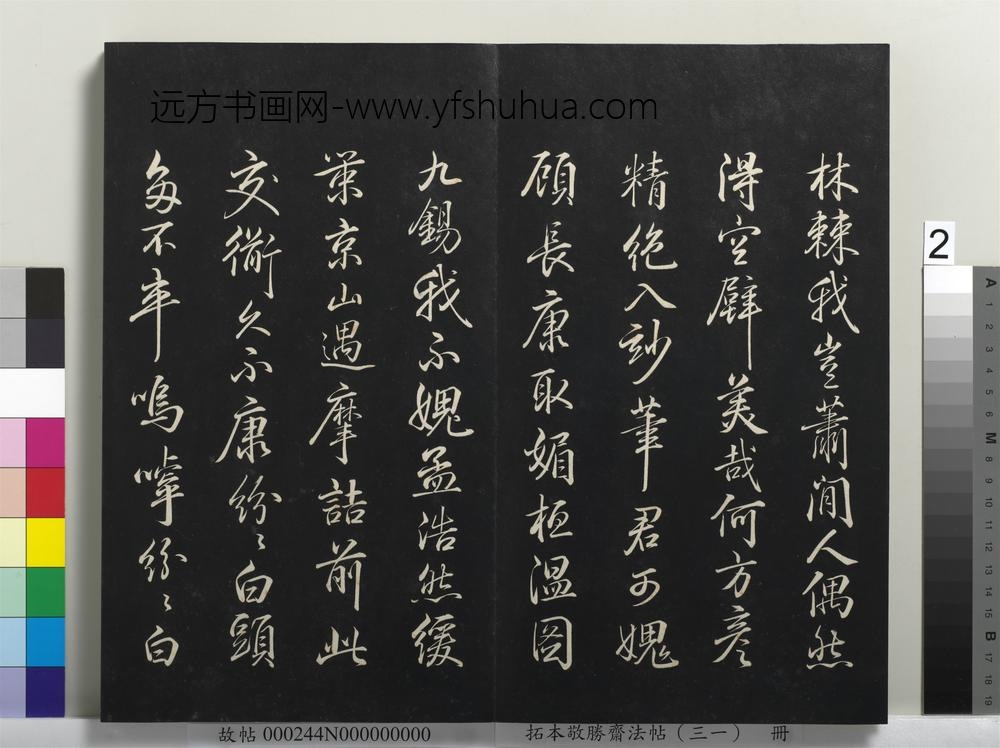 远方书画网-www.yfshuhua.com
林棘我豈蕭閒人偶然
得空壁美哉何方彥
精絕入玅筆君可媿
顧長康取媚桓溫圖
九錫我不媿孟浩然緩
策京山遇摩詰前此
交衢久不康紛〻白頭
多不嗚嘑紛〻白
2
故帖 000244N000000000
拓本敬勝齋法帖（三一） 冊
A 1 2 3 4 5 6 M 8 9 10 11 12 13 14 15 B 17 18 19